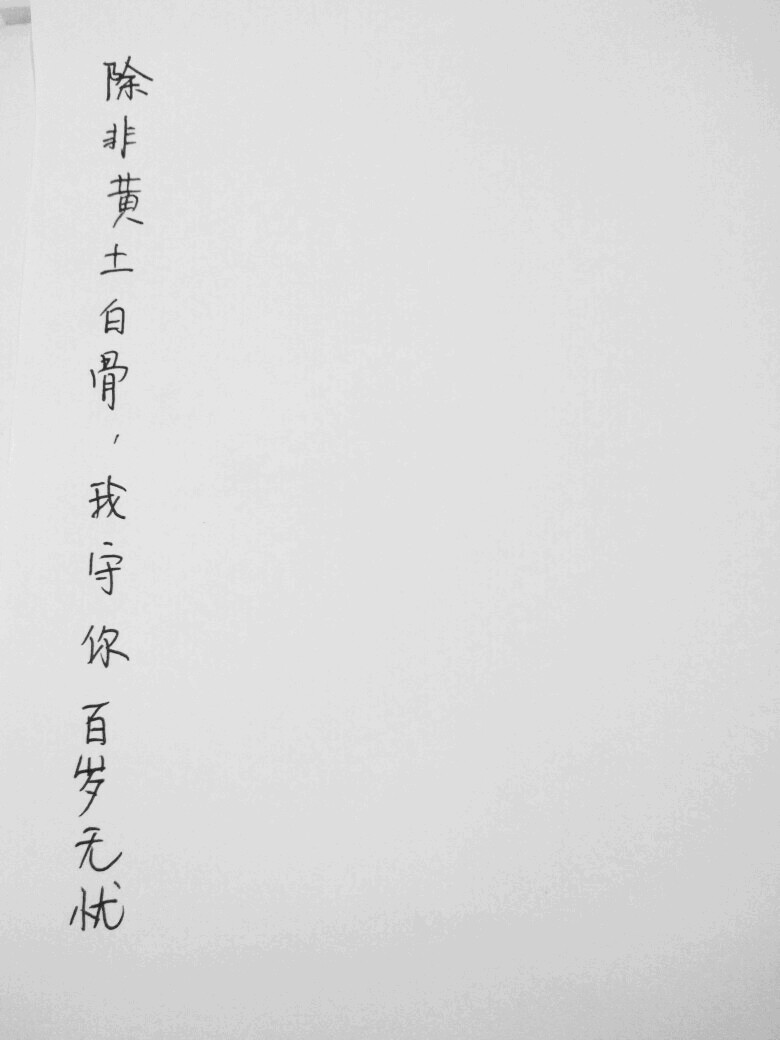 除非黄土白骨，我守你百岁无忧